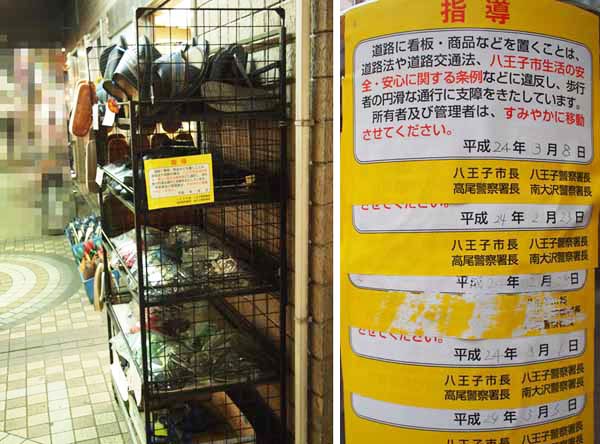 指導
指導
道路に看板・商品などを置くことは、
道路法や道路交通法、八王子市生活の安
全・安心に関する条例などに違反し、歩行
者の円滑な通行に支障をきたしています。
所有者及び管理者は、すみやかに移動
させてください。
平成24年3月8日
八王子市長 八王子警察署長
高尾警察署長 南大沢警察署長
させてください。
平成24年2月23日
八王子市長 八王子警察署長
高尾警察署長 南大沢警察署長
平成24年2月 日
させてください。
平成24年3月1日
八王子市長 八王子警察署長
高尾警察署長 南大沢警察署長
平成24年 月 日
八王子市長 八王子警察署長